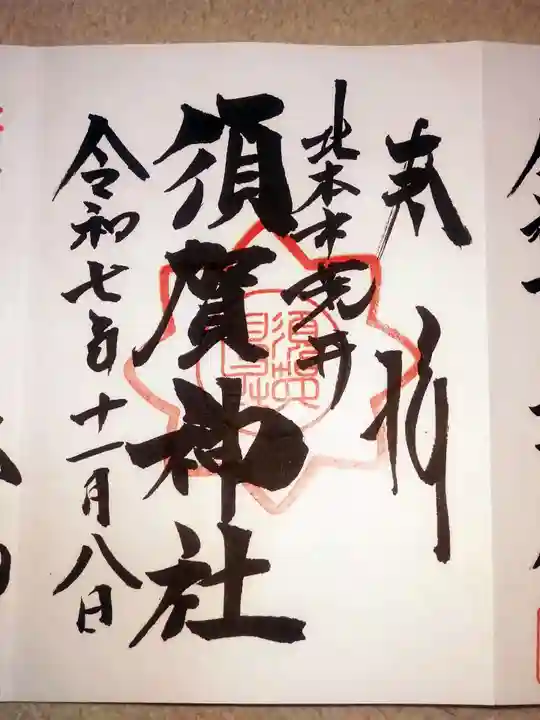 奉拝
北本市荒井
須賀神社
令和七年十一月八日